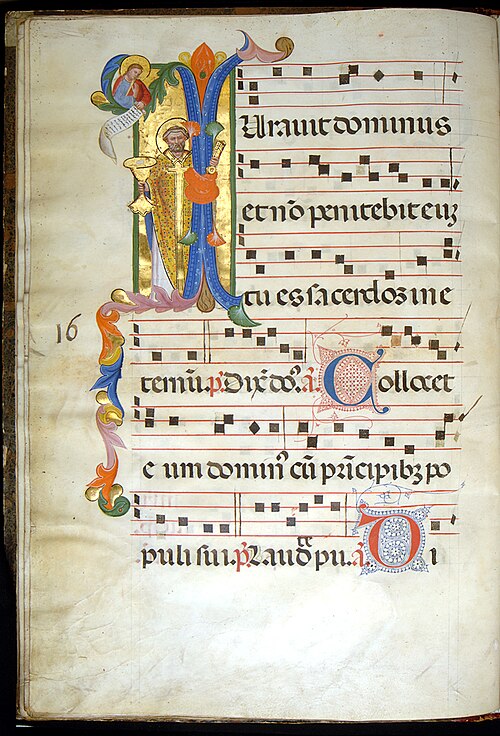 Iuravit dominus
et nō penitebit euꝫ
tu es sacerdos in e
16
ternū. p̄. Dix̄ do᷒. a᷒. Collocet
e um domin᷒ cū prīcipibꝫ po
puli sui. p̄. Laudate pu. a᷒. Di